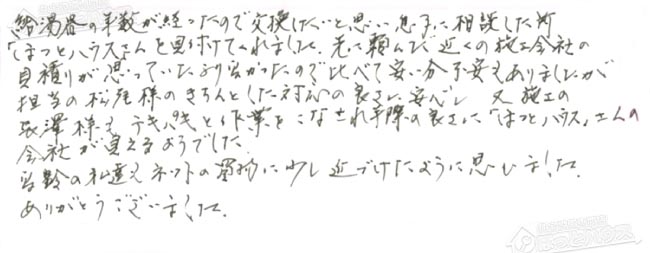 給湯器の年数が経ったので交換したいと思い息子に相談した所
「ほっとハウスさんを見付けてくれました。先に頼んだ近くの施工会社の
見積りが思っていたより高かったので比べて安い分不安もありましたが
担当の松尾様のきちんとした対応の良さに安心し 又施工の
長澤様も テキパキと作業をこなされ手際の良さに「ほっとハウス」さんの
会社が見えるようでした。
高齢の私達もネットの買物に少し近づけたように思いました。
ありがとうございました。
ほっとハウス